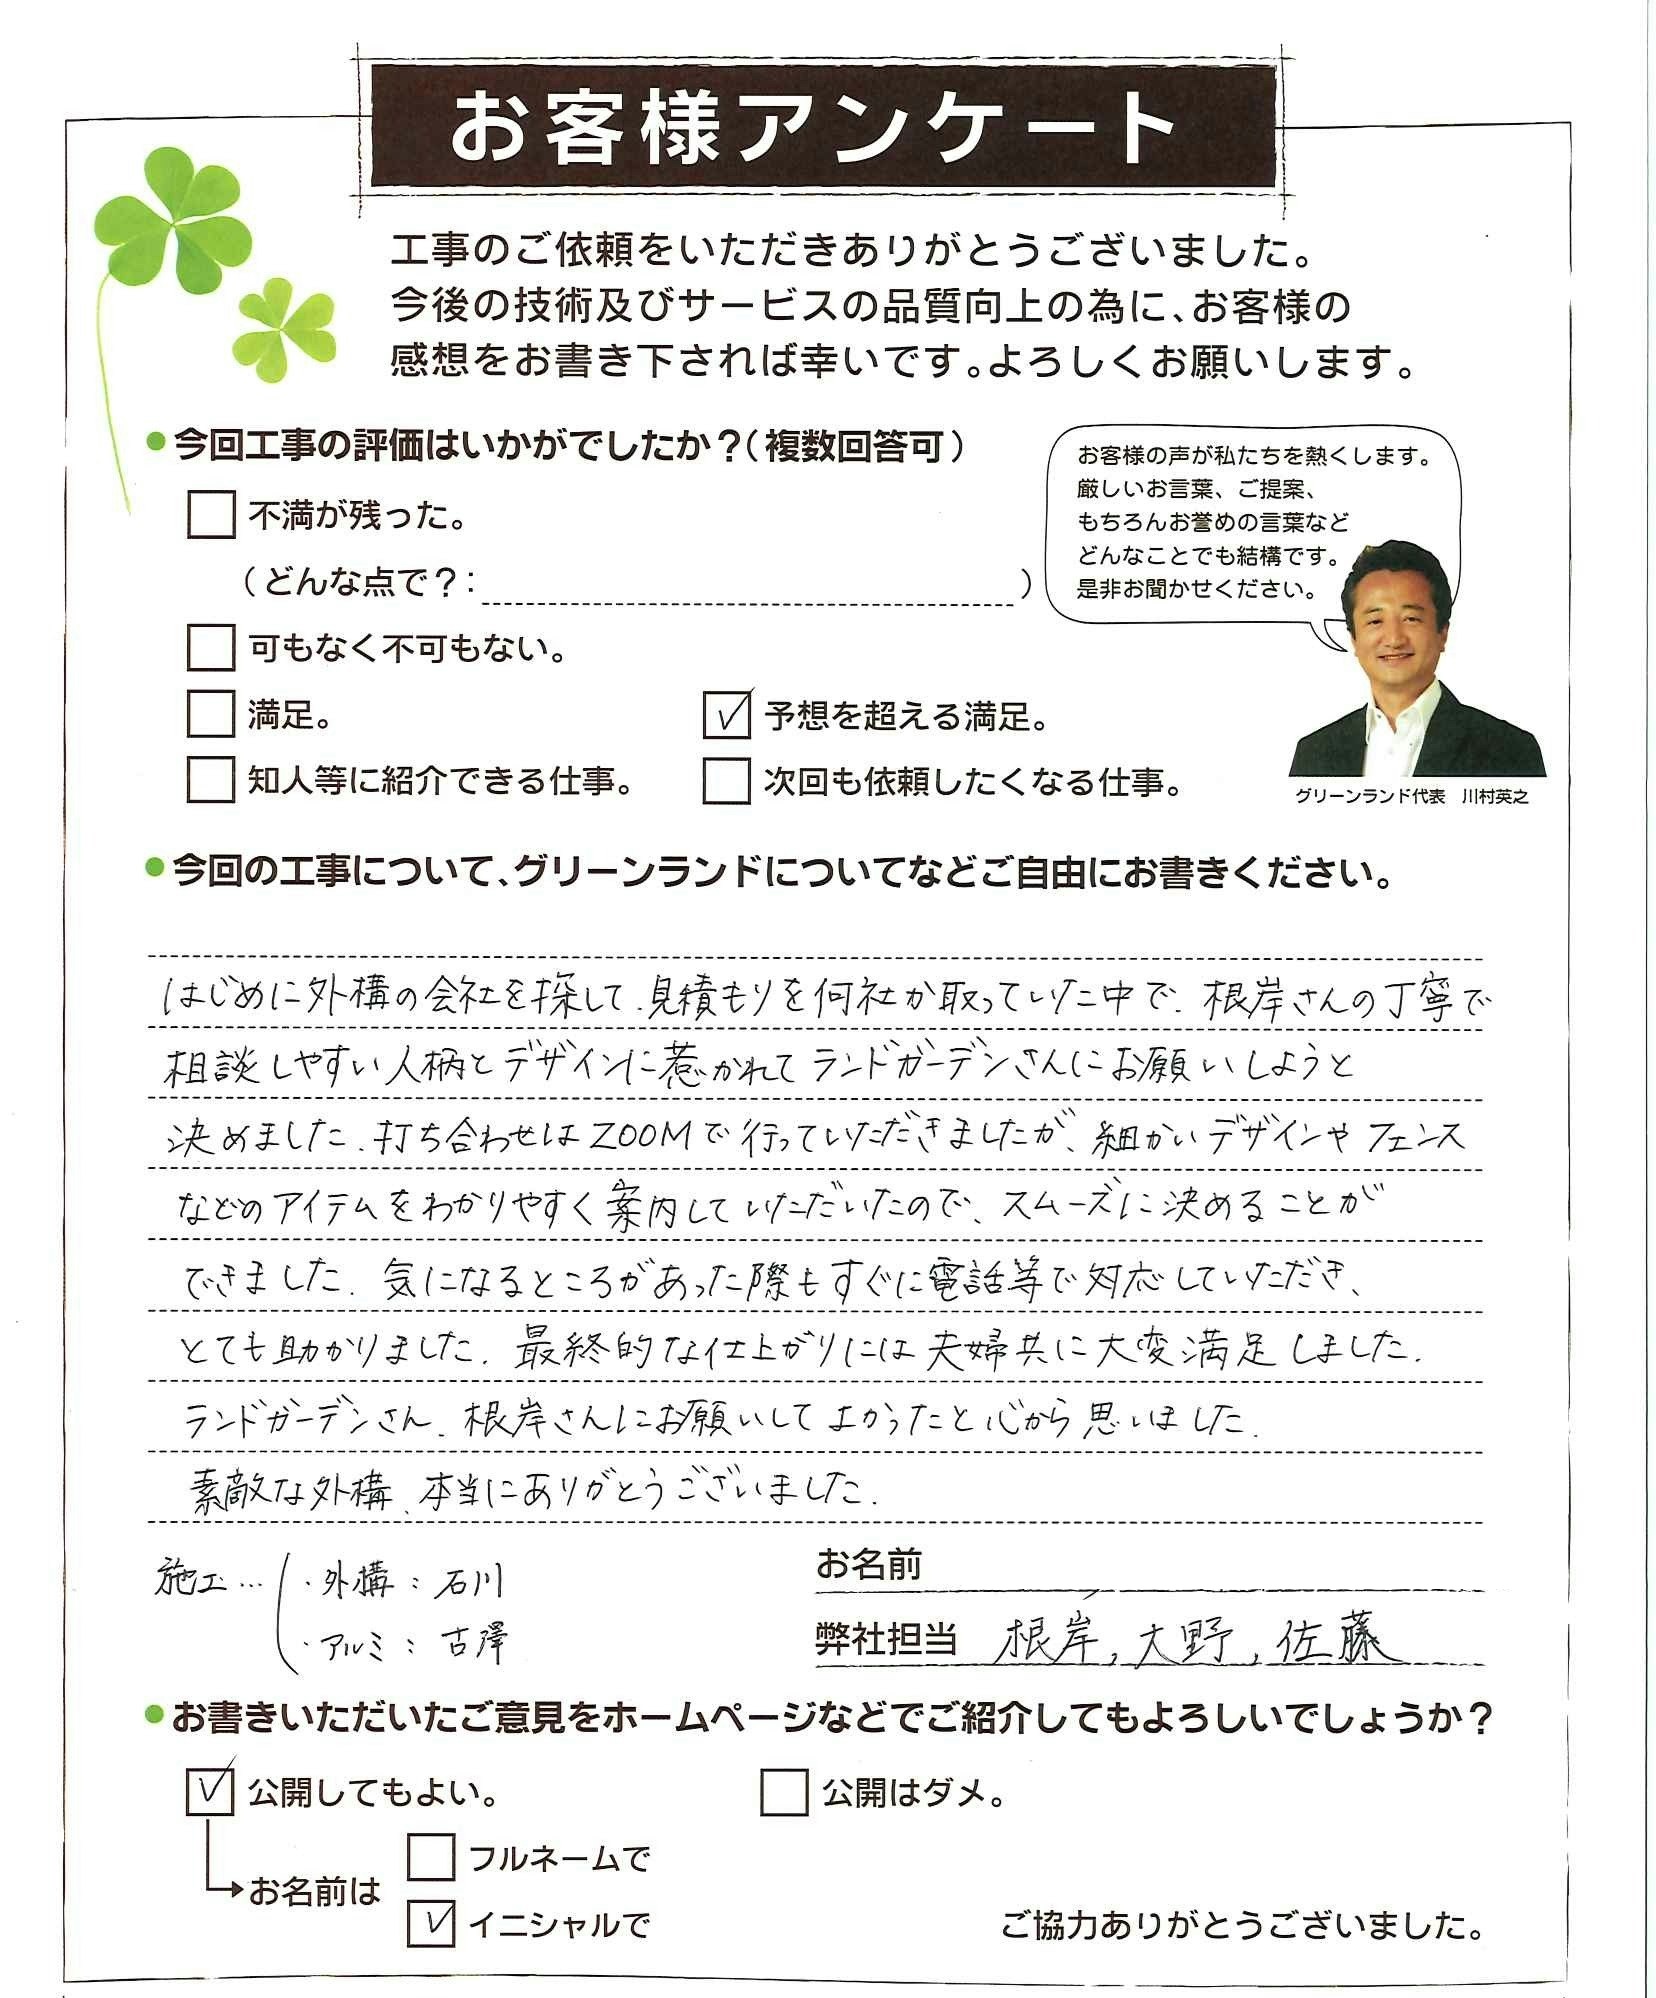 お客様アンケート
工事のご依頼をいただきありがとうございました。
今後の技術及びサービスの品質向上の為に、お客様の
感想をお書き下されば幸いです。よろしくお願いします。
●今回工事の評価はいかがでしたか？（複数回答可）
不満が残った。
（どんな点で？： ）
可もなく不可もない。
満足。
予想を超える満足。
知人等に紹介できる仕事。
次回も依頼したくなる仕事。
お客様の声が私たちを熱くします。
厳しいお言葉、ご提案、
もちろんお誉めの言葉など
どんなことでも結構です。
是非お聞かせください。
グリーンランド代表 川村英之
●今回の工事について、グリーンランドについてなどご自由にお書きください。
はじめに外構の会社を探して、見積もりを何社か取っていた中で、根岸さんの丁寧で
相談しやすい人柄とデザインに惹かれてランドガーデンさんにお願いしようと
決めました。打ち合わせはZOOMで行っていただきましたが、細かいデザインやフェンス
などのアイテムをわかりやすく案内していただいたので、スムーズに決めることが
できました。気になるところがあった際もすぐに電話等で対応していただき、
とても助かりました。最終的な仕上がりには夫婦共に大変満足しました。
ランドガーデンさん、根岸さんにお願いしてよかったと心から思いました。
素敵な外構、本当にありがとうございました。
施工…（・外構：石川
・アルミ：古澤
お名前
弊社担当 根岸，大野，佐藤
●お書きいただいたご意見をホームページなどでご紹介してもよろしいでしょうか？
公開してもよい。
公開はダメ。
お名前は
フルネームで
イニシャルで
ご協力ありがとうございました。